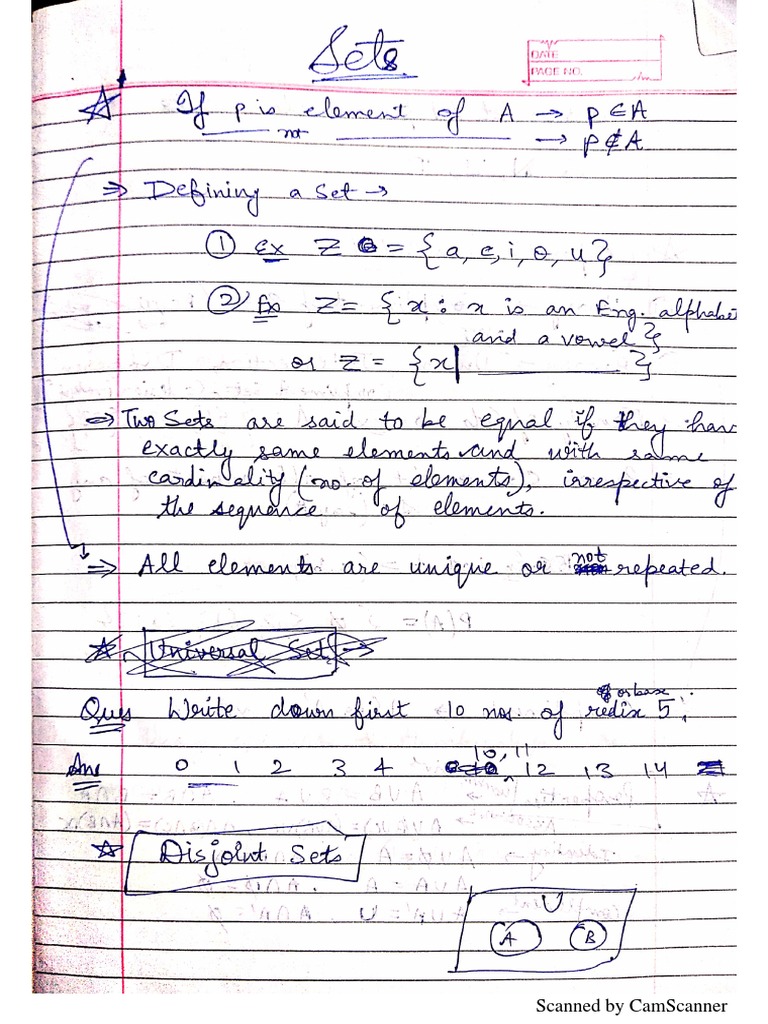 Sets
DATE
PAGE NO.
If p is element of A → p ∈ A
not → p ∉ A
⇒ Defining a set →
① Ex Z = {a, e, i, o, u}
② Ex Z = {x : x is an Eng. alphabe
and a vowel}
or Z = {x| }
⇒ Two Sets are said to be equal if they hav
exactly same elements and with same
cardinality (no. of elements), irrespective of
the sequence of elements.
⇒ All elements are unique or not repeated.
Universal Set →
or base
Ques Write down first 10 nos. of redix 5.
Ans 0 1 2 3 4 10, 11, 12 13 14
Disjoint Sets
U
A B
Scanned by CamScanner